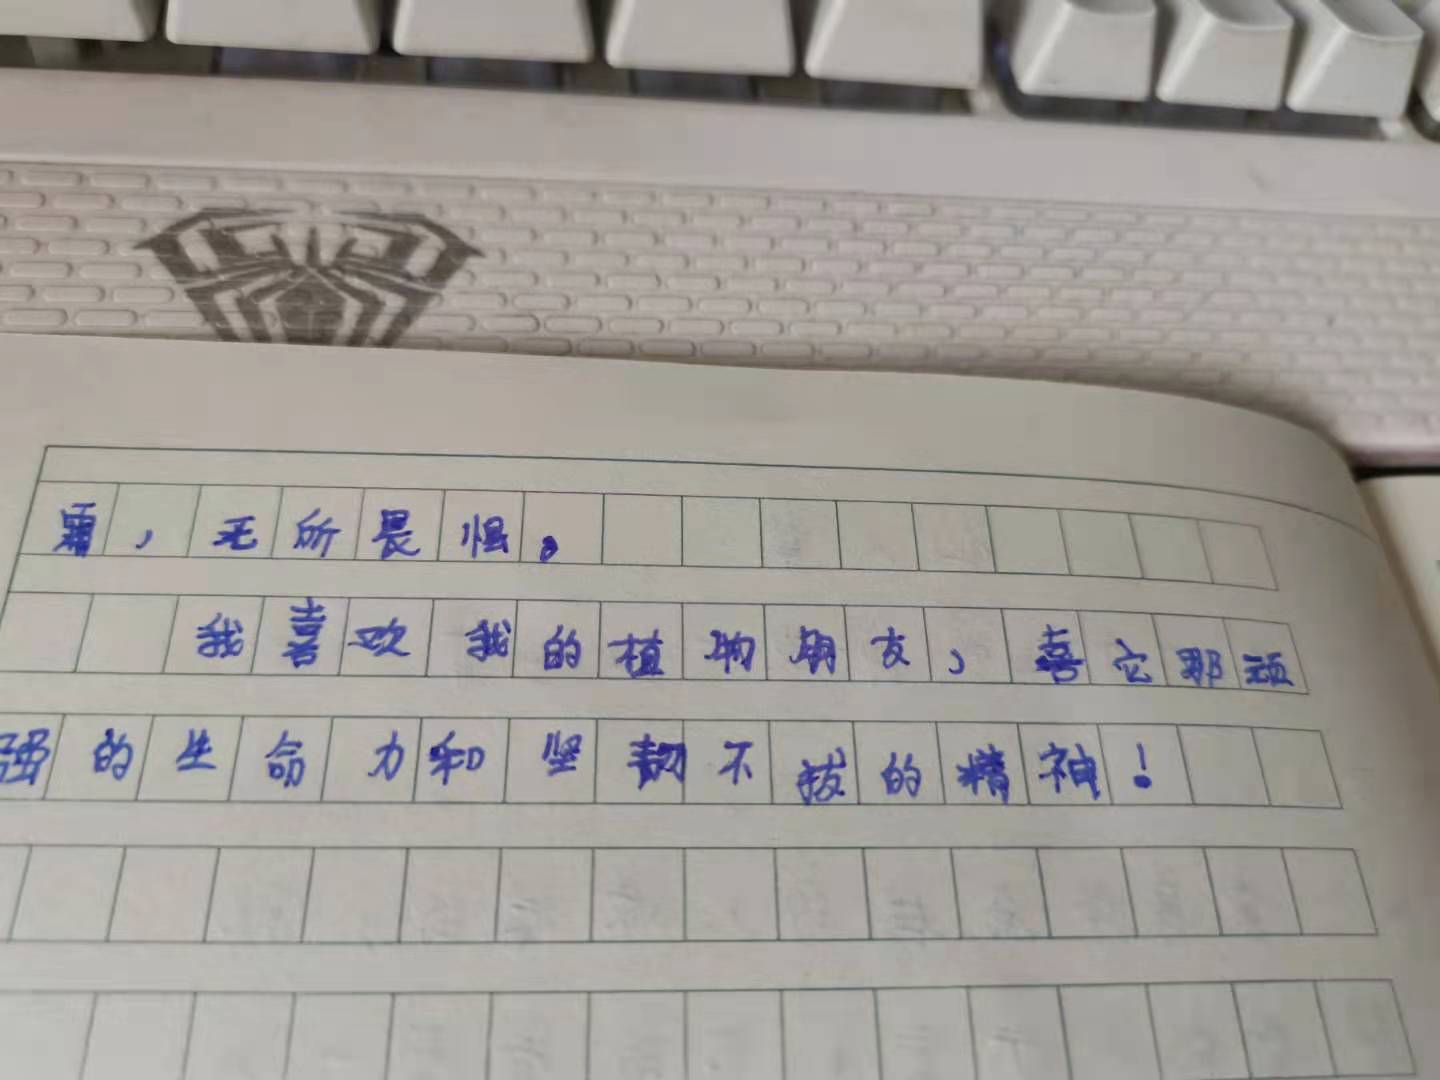 霜，无所畏惧。
我喜欢我的植物朋友，喜它那顽
强的生命力和坚韧不拔的精神！